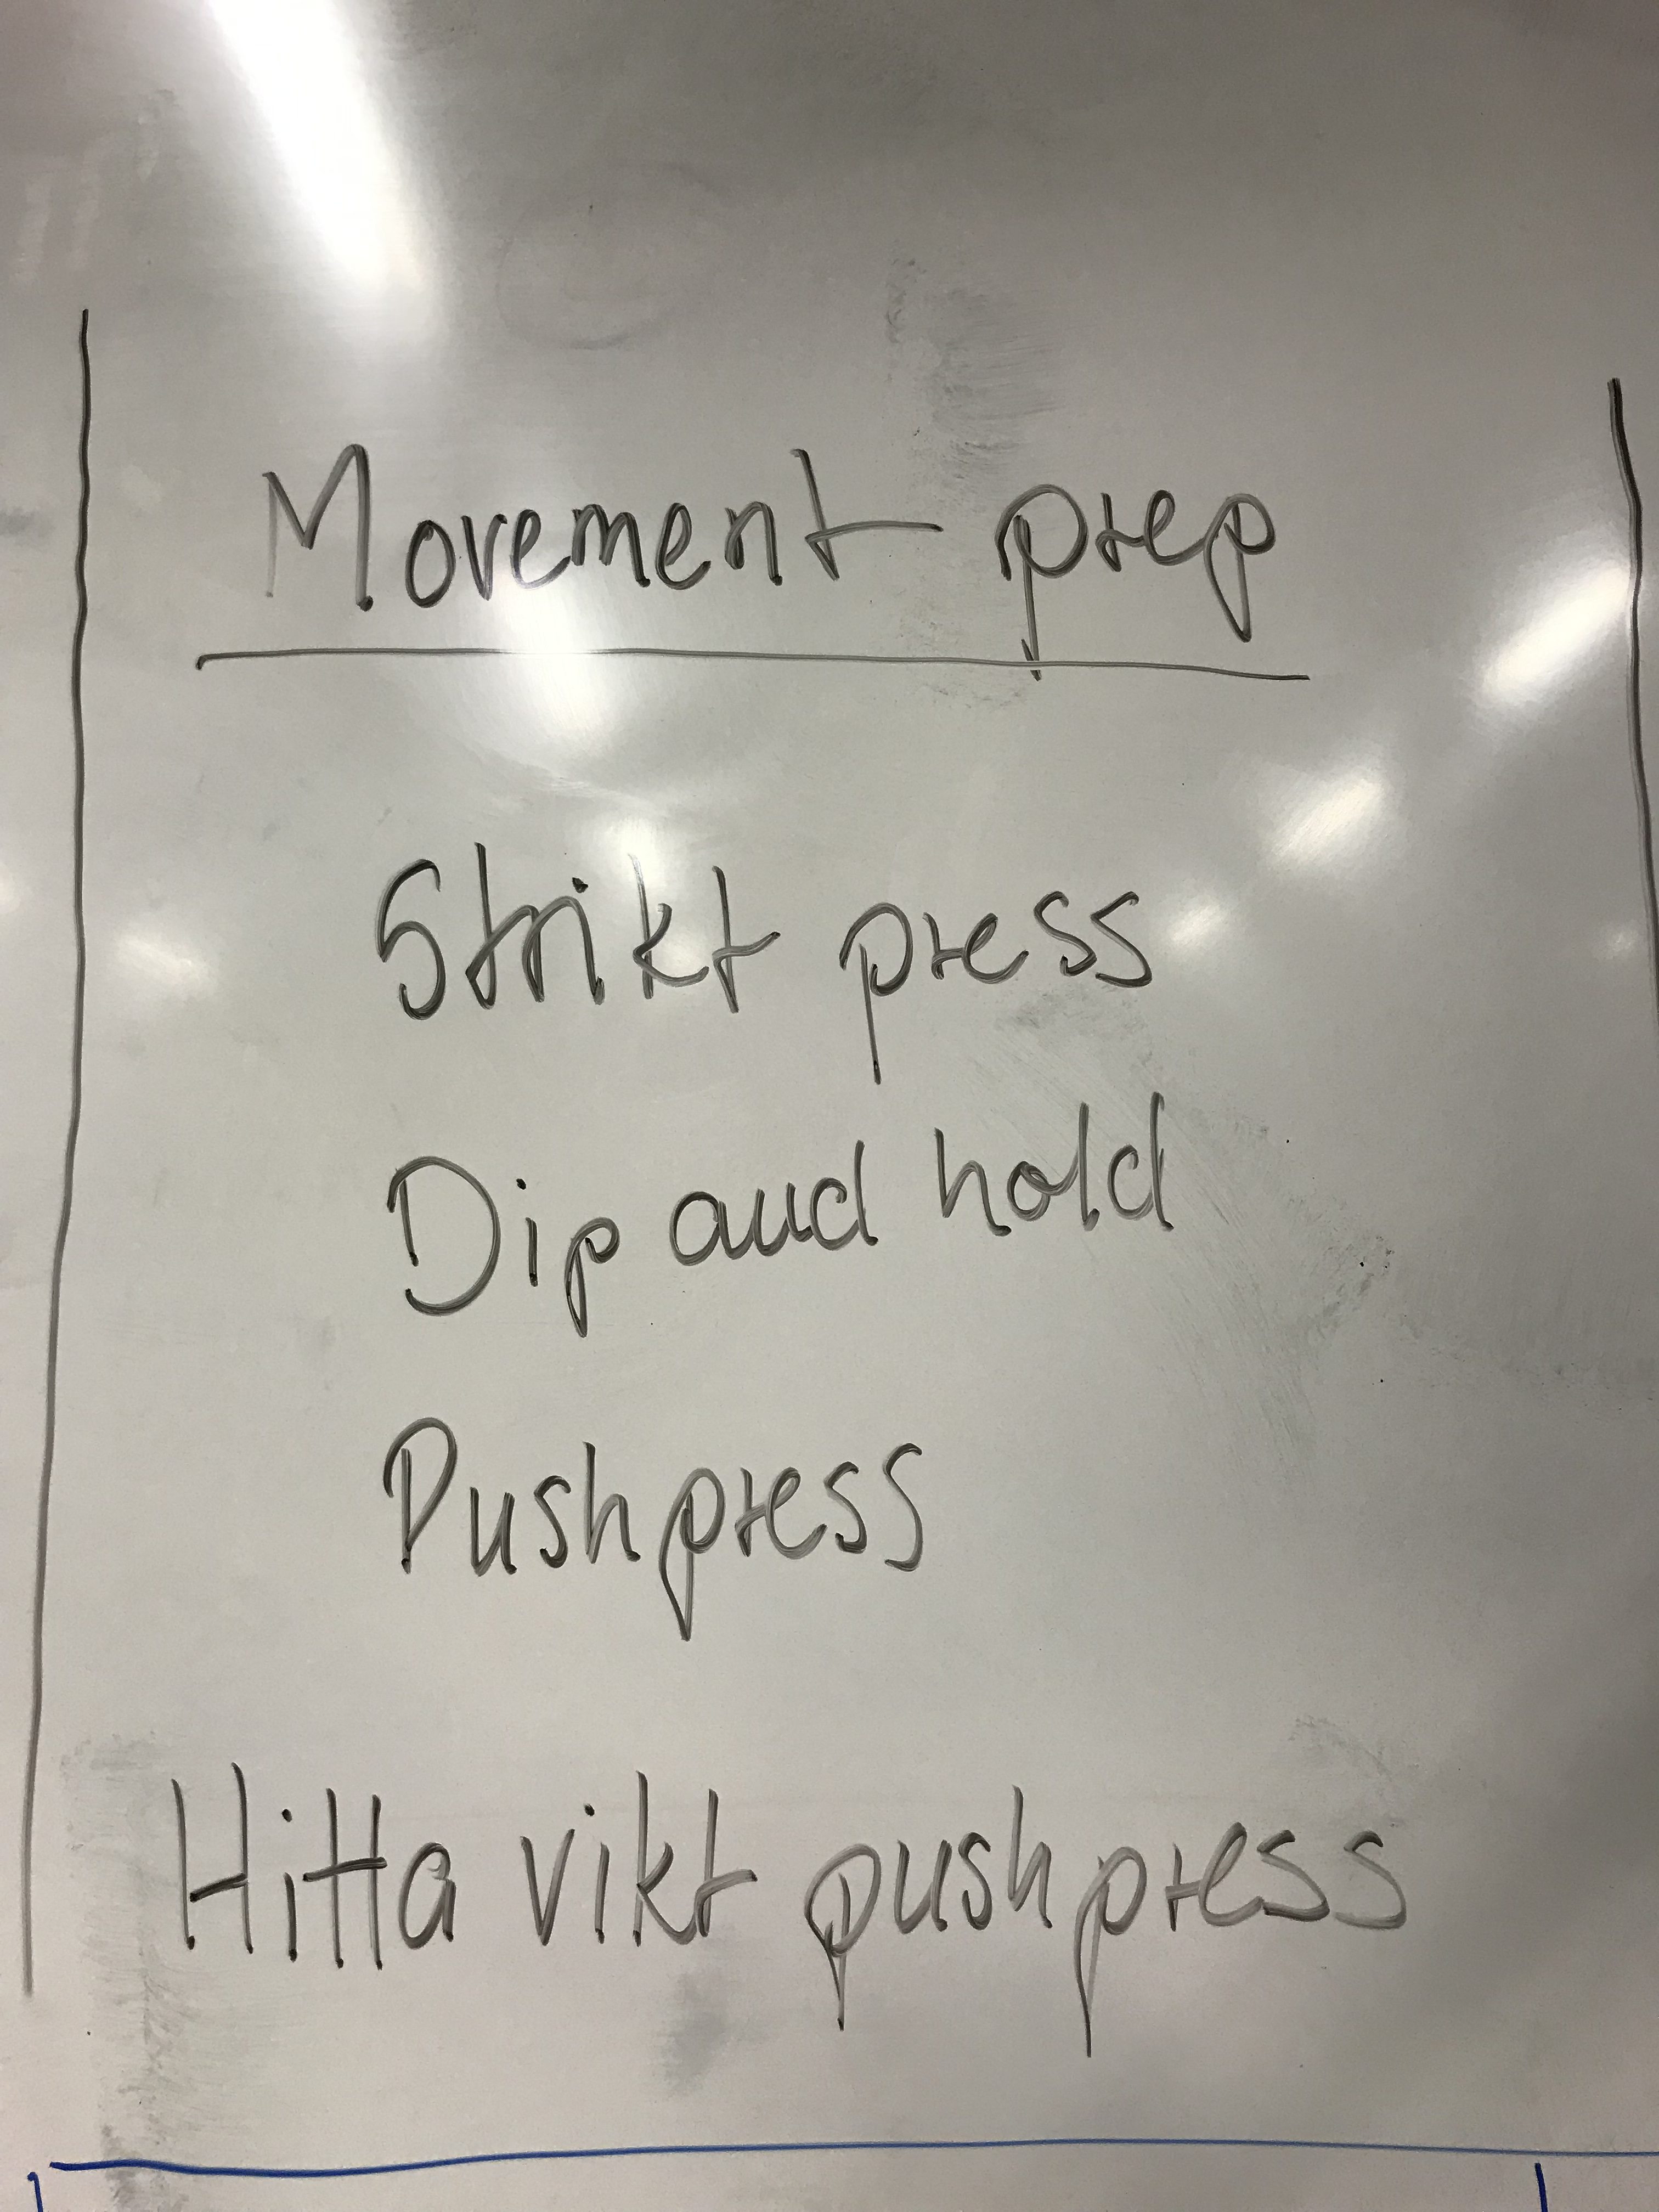 Movement prep
Strikt press
Dip and hold
Pushpress
Hitta vikt pushpress